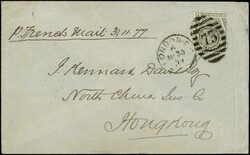 p. French Mail 31.11.77
LONDON
75
J. Kennard Davis Esq
North China Ins. Co
Hong Kong